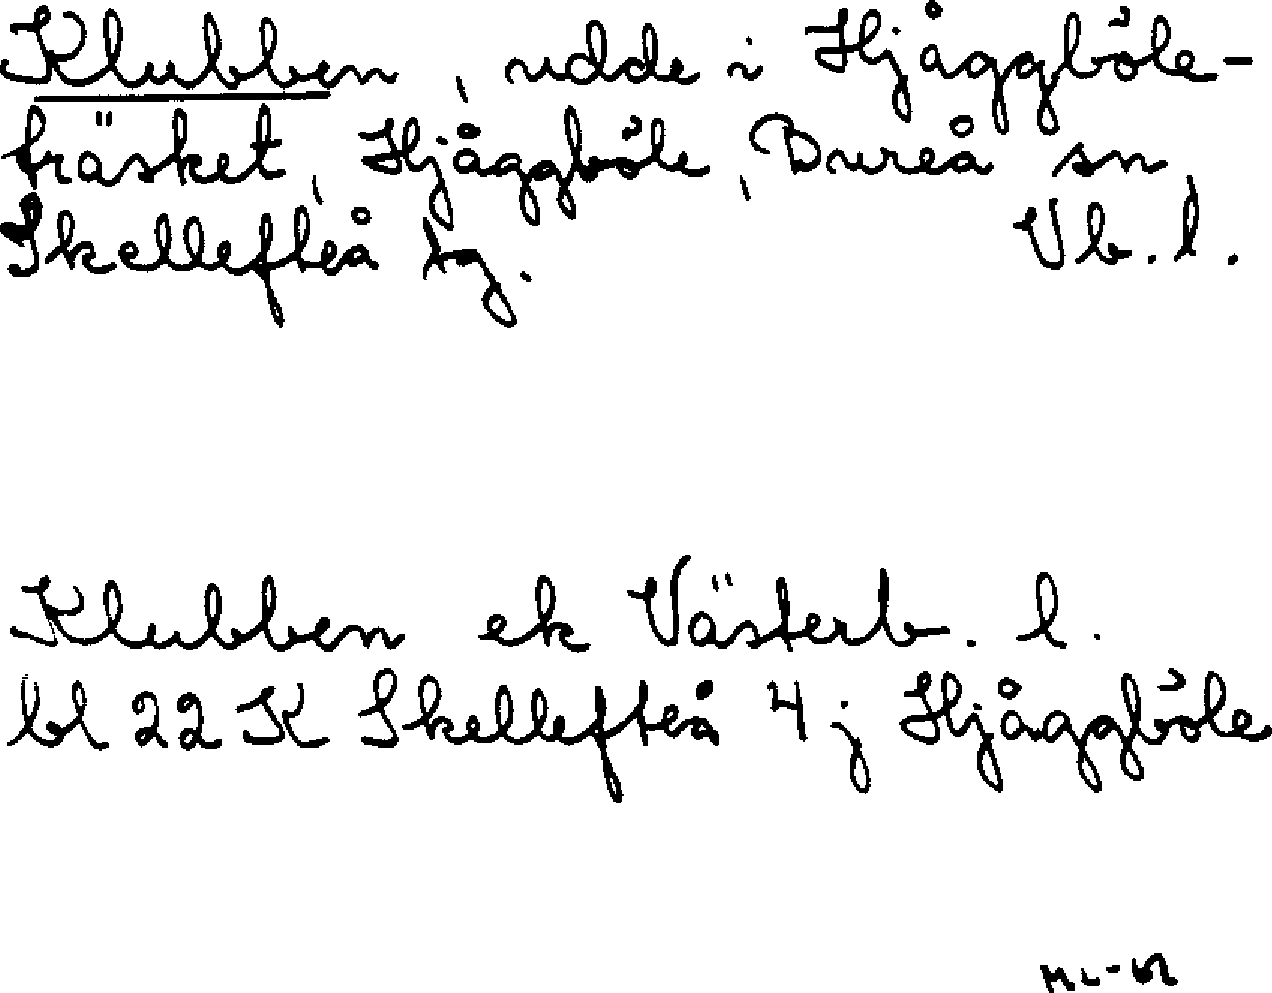 Klubben, udde i Hjåggböle-
träsket, Hjåggböle, Bureå sn,
Skellefteå tg. Vb. l.
Klubben ek Västerb. l.
bl 22 K Skellefteå 4 j Hjåggböle